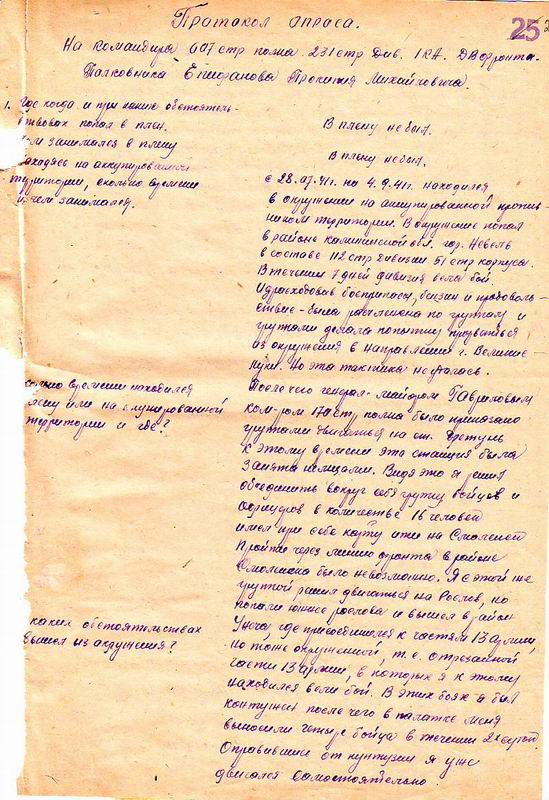 25
Пратакол опроса.
На командира 607 стр полка. 231 стр Див. 1 КА. ДВфронта.
Палковника Епифанова Прокопия Михайловича.
1. Где когда и при каких обстоятель-
ствовах попал в плен.
В плену небыл.
занимался в плену
В плену небыл.
находясь на аккупированной
территории, сколько времени
и чем занимался.
с 28.07.41г. по 4.9.41г. находился
в окружении на аккупированной против-
ником территории. В окружение попал
в районе калининской обл. гор. Невель
в составе 112 стр дивизии 51 стр корпуса.
В течении 7 дней дивизия вела бой.
Израсходовав боеприпасы, бензин и продоволь-
ствие - была расчленена по группам и
группами делала попытки прорваться
из окружения в направлении г. Великие-
луки. Но эта тактика неудалась.
сколько времени находился
плену или на окупированной
территории и где?
После чего генерал-майором Гавриловым
ком-ром 174 стр полка было приказано
группами двигаться на ст.
к этому времени эта станция была
занята немцами. Видя это я решил
объеденить вокруг себя группу бойцов и
офицеров в количестве 16 человек
имел при себе карту итти на Смоленск
Пройти через линию фронта в районе
Смоленска было невозможно. Я с этой же
группой решил двигаться на Рослов, но
попали южнее рослова и вышел в район
каких обстоятельствах
вышел из окружения?
Унеча, где присоединился к частям 13 армии,
но тоже окруженной, т.е. отрезанной
части 13 армии, в которых я к этому
находился вели бой. В этих боях я был
контужен после чего в палатке меня
выносили четыре бойца в течении 2х суток
Оправившись от контузии я уже
двигался самостоятельно.